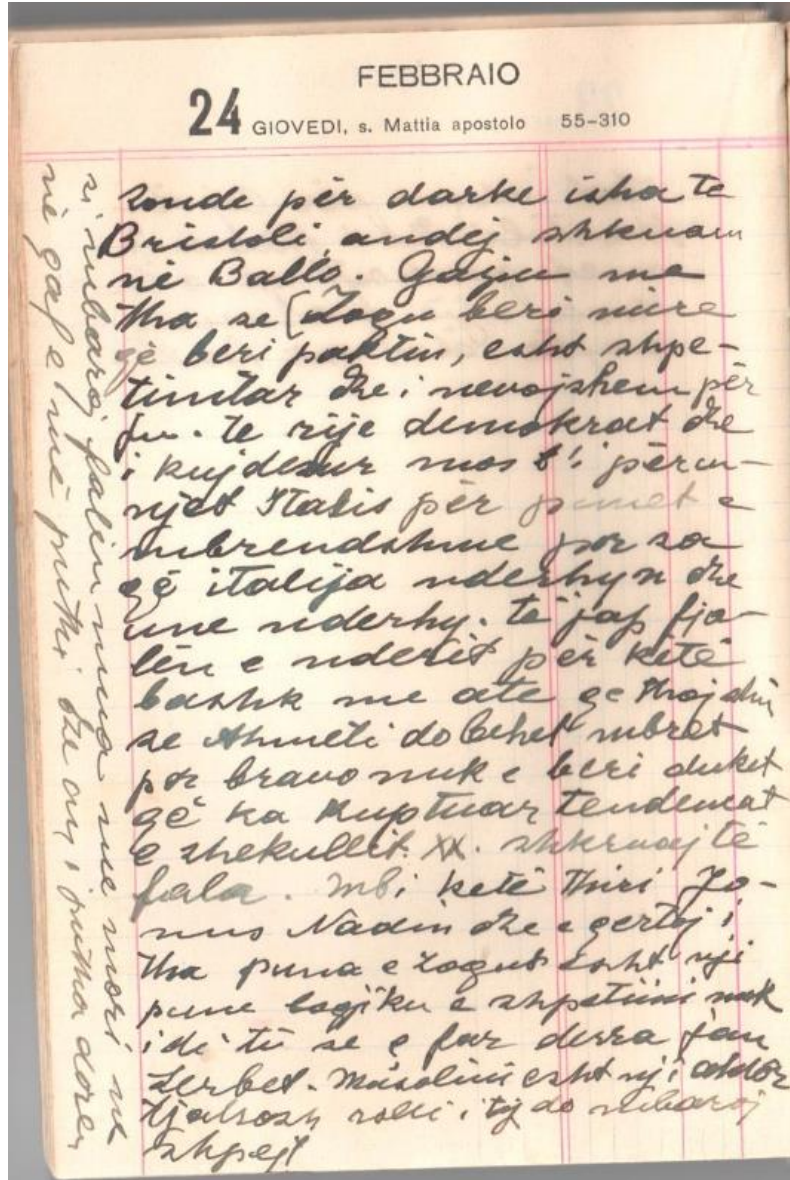 FEBBRAIO
24 GIOVEDI, s. Mattia apostolo 55-310
Sonde për darke isha te
Bristoli, andej shkuam
në Ballo. me
tha se (Zogu beri mire
që beri paktin, esht shpe-
timtar dhe i nevojshem për
ju. te rije demokrat dhe
i kujdesur mos t'i përu-
njet Italis për punet e
mbrendshme por sa
që italija nderhyn dhe
une nderhy. të jap fja-
lën e nderit për ketë
bashk me ate qe thoj din
se Ahmeti do behet mbret
por bravo nuk e beri duket
që ka kuptuar tendencat
e shekullit XX. shkruaj të
fala. Mbi ketë thiri Jo-
nus Nadin dhe e qertoj i
tha puna e Zogut esht nji
pune logjiku e shpetimi nuk
i di ti se ç far derra jan
Serbet. Musolini esht nji
rolli i tij do mbaroj
shpejt
si mbaroj falin mua me mori ne
në qaf e më puthi dhe ay i putha doren